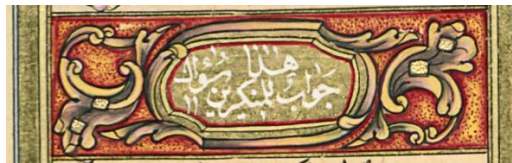 هذا
جواب للمنكرين سؤال